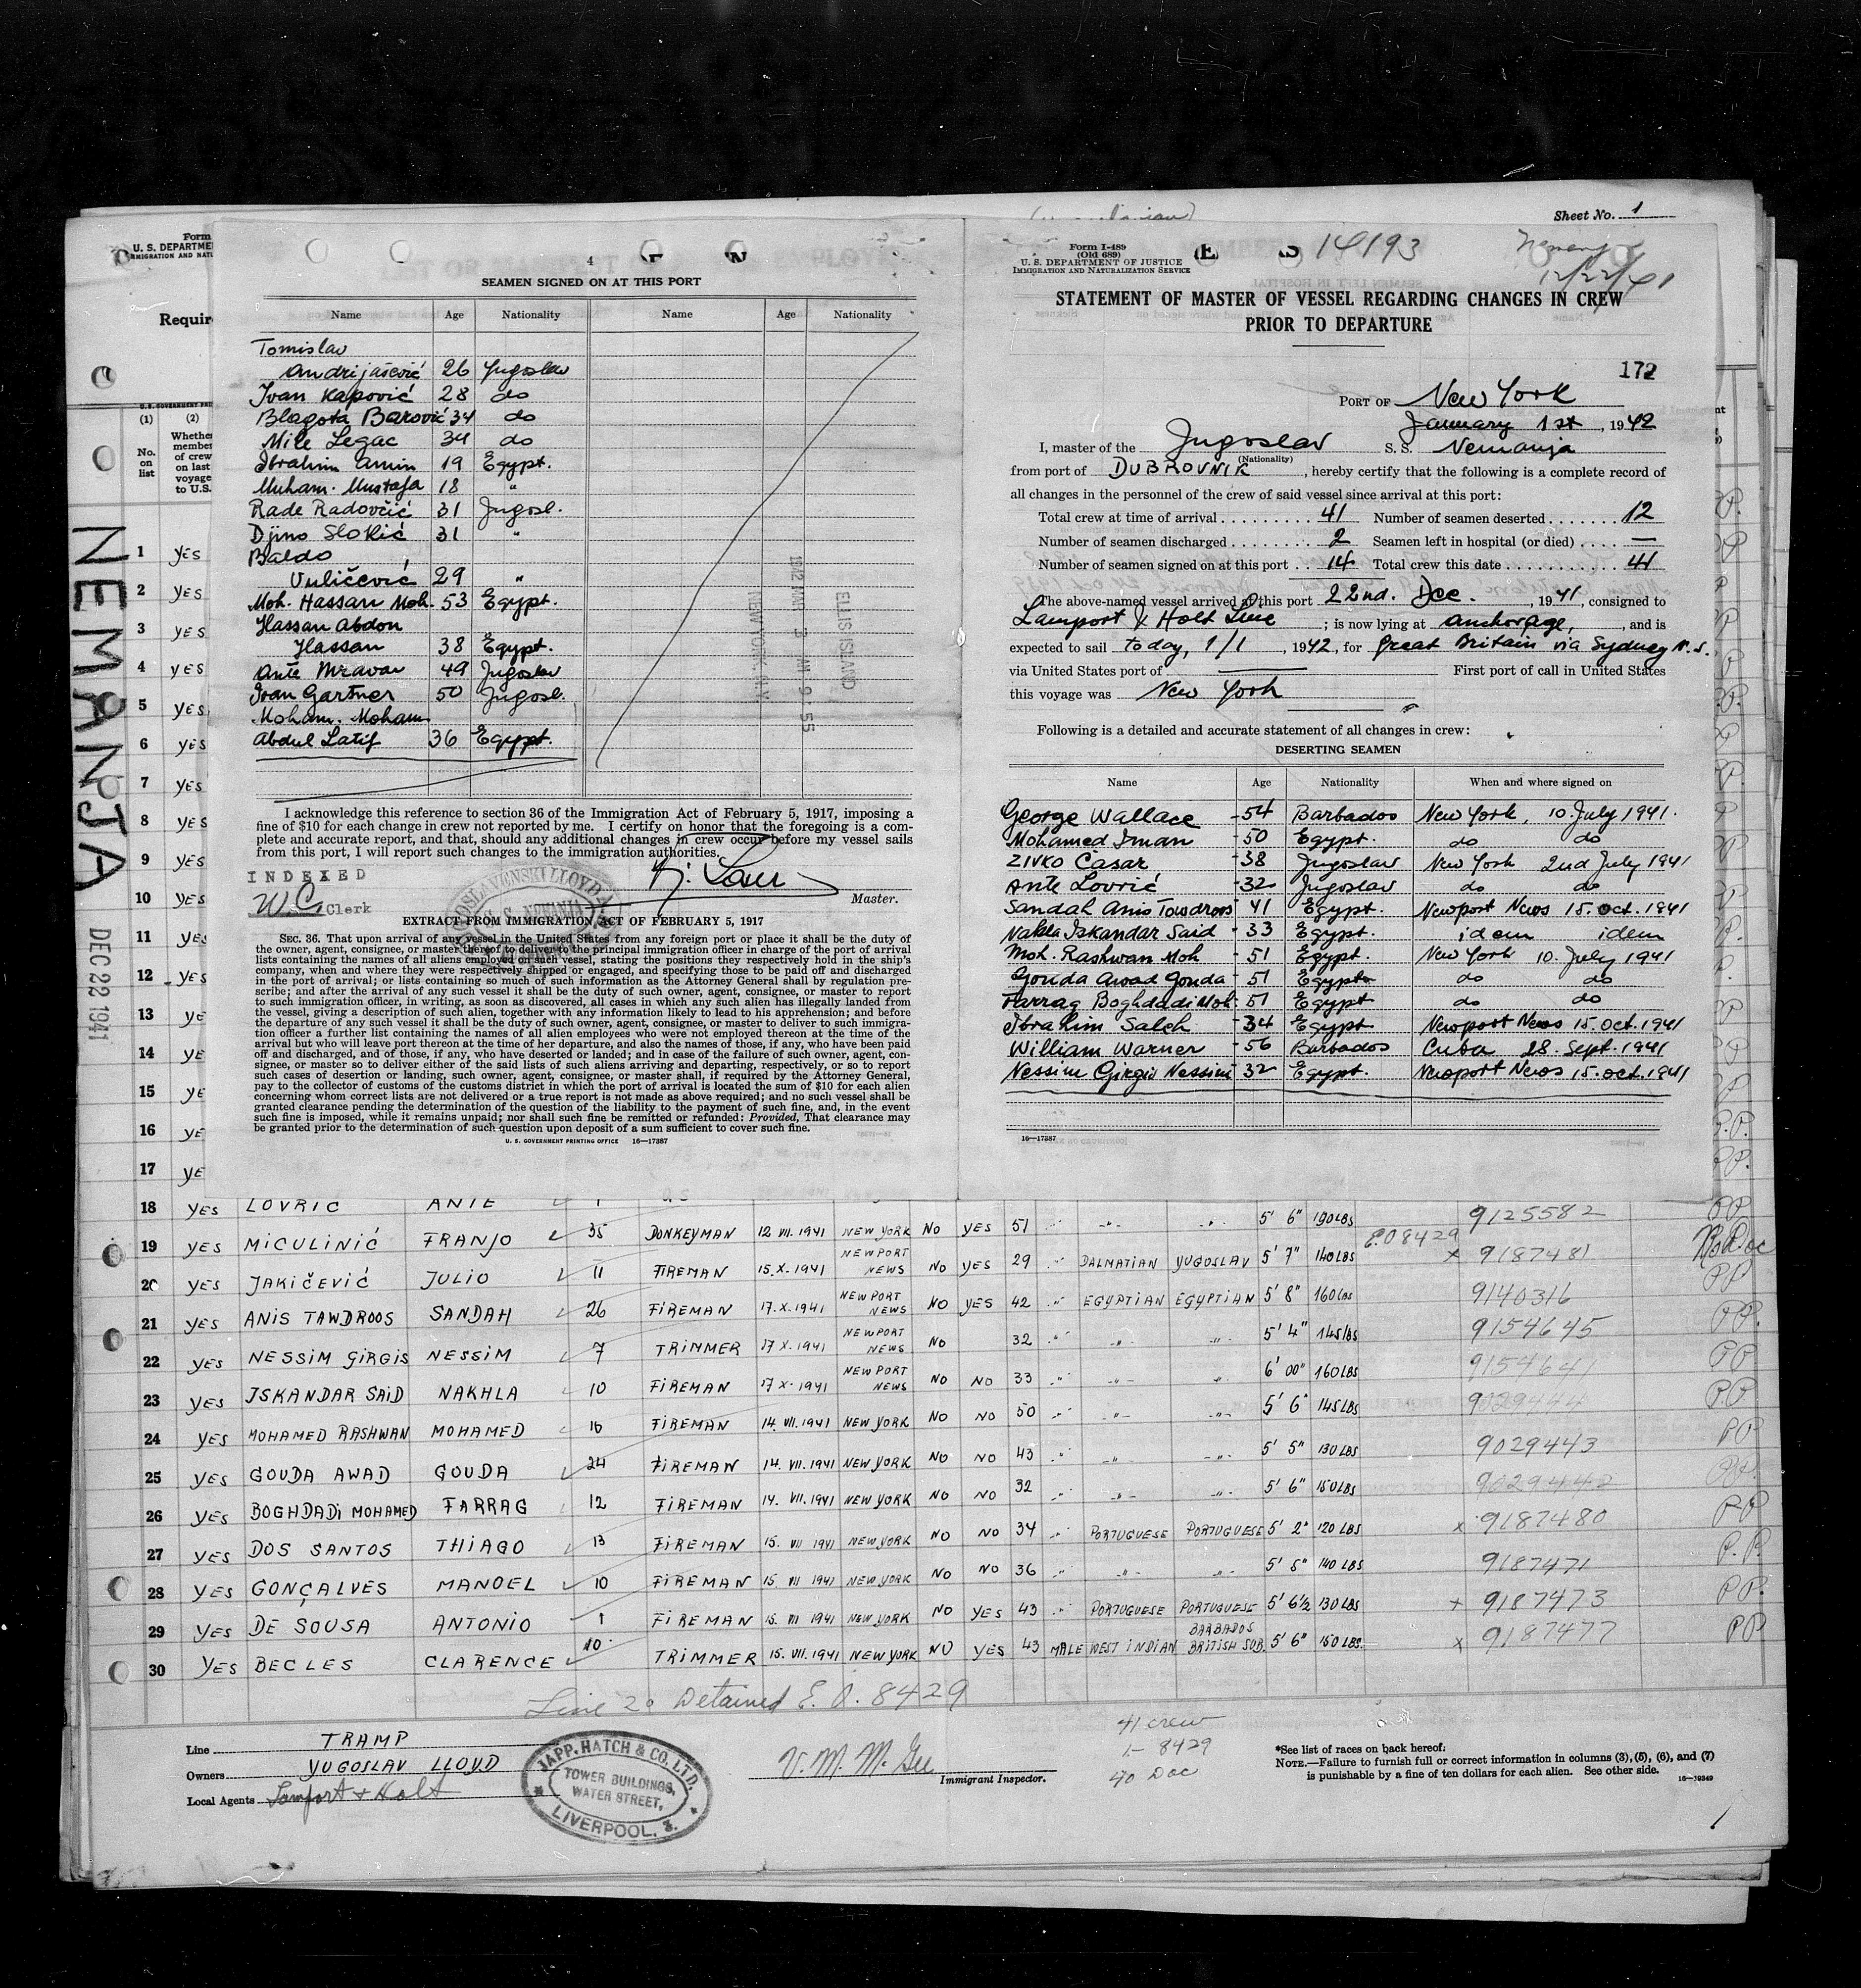 Sheet No. 1
Form
U. S. DEPARTME
IMMIGRATION AND NATU
Requir
(1) (2)
No. on list
Whether member of crew on last voyage to U.S.
NEMANJA
DEC 22 1941
4
SEAMEN SIGNED ON AT THIS PORT
Name Age Nationality Name Age Nationality
Tomislav
Andrijašević 26 Yugoslav
Ivan Kapović 28 do
Blagota Barović 34 do
Mile Legac 34 do
Ibrahim Amin 19 Egypt.
Muham. Mustafa 18 "
Rade Radovčić 31 Jugosl.
Djino Slokić 31 "
Baldo
Vuličević 29 "
Moh. Hassan Moh. 53 Egypt.
Hassan Abdon
Hassan 38 Egypt.
Ante Mravar 49 Jugoslav
Ivan Gartner 50 Jugosl.
Moham. Moham.
Abdul Latif 36 Egypt.
1942 MAR 3 AM 9:55
ELLIS ISLAND
NEW YORK, N.Y.
I acknowledge this reference to section 36 of the Immigration Act of February 5, 1917, imposing a
fine of $10 for each change in crew not reported by me. I certify on honor that the foregoing is a com-
plete and accurate report, and that, should any additional changes in crew occur before my vessel sails
from this port, I will report such changes to the immigration authorities.
INDEXED
W.C. Clerk
Master.
EXTRACT FROM IMMIGRATION ACT OF FEBRUARY 5, 1917
SEC. 36. That upon arrival of any vessel in the United States from any foreign port or place it shall be the duty of
the owner, agent, consignee, or master thereof to deliver to the principal immigration officer in charge of the port of arrival
lists containing the names of all aliens employed on such vessel, stating the positions they respectively hold in the ship's
company, when and where they were respectively shipped or engaged, and specifying those to be paid off and discharged
in the port of arrival; or lists containing so much of such information as the Attorney General shall by regulation pre-
scribe; and after the arrival of any such vessel it shall be the duty of such owner, agent, consignee, or master to report
to such immigration officer, in writing, as soon as discovered, all cases in which any such alien has illegally landed from
the vessel, giving a description of such alien, together with any information likely to lead to his apprehension; and before
the departure of any such vessel it shall be the duty of such owner, agent, consignee, or master to deliver to such immigra-
tion officer a further list containing the names of all alien employees who were not employed thereon at the time of the
arrival but who will leave port thereon at the time of her departure, and also the names of those, if any, who have been paid
off and discharged, and of those, if any, who have deserted or landed; and in case of the failure of such owner, agent, con-
signee, or master so to deliver either of the said lists of such aliens arriving and departing, respectively, or so to report
such cases of desertion or landing, such owner, agent, consignee, or master shall, if required by the Attorney General,
pay to the collector of customs of the customs district in which the port of arrival is located the sum of $10 for each alien
concerning whom correct lists are not delivered or a true report is not made as above required; and no such vessel shall be
granted clearance pending the determination of the question of the liability to the payment of such fine, and, in the event
such fine is imposed, while it remains unpaid; nor shall such fine be remitted or refunded: Provided, That clearance may
be granted prior to the determination of such question upon deposit of a sum sufficient to cover such fine.
U. S. GOVERNMENT PRINTING OFFICE 16—17387
Form I-489
(Old 689)
U. S. DEPARTMENT OF JUSTICE
IMMIGRATION AND NATURALIZATION SERVICE
14193
12/22/41
STATEMENT OF MASTER OF VESSEL REGARDING CHANGES IN CREW
PRIOR TO DEPARTURE
172
PORT OF New York
January 1st, 1942
I, master of the Jugoslav S. S. Nemanja
(Nationality)
from port of DUBROVNIK, hereby certify that the following is a complete record of
all changes in the personnel of the crew of said vessel since arrival at this port:
Total crew at time of arrival 41 Number of seamen deserted 12
Number of seamen discharged 2 Seamen left in hospital (or died) —
Number of seamen signed on at this port 14 Total crew this date 41
The above-named vessel arrived at this port 22nd. Dec., 1941, consigned to
Lamport & Holt Line; is now lying at anchorage, and is
expected to sail today, 1/1, 1942, for Great Britain via Sydney N.S.
via United States port of First port of call in United States
this voyage was New York
Following is a detailed and accurate statement of all changes in crew:
DESERTING SEAMEN
Name Age Nationality When and where signed on
George Wallace - 54 Barbados New York, 10. July 1941.
Mohamed Iman - 50 Egypt. do do
Zivko Casar - 38 Jugoslav New York 2nd July 1941
Ante Lovrić - 32 Jugoslav do do
Sandah Anis Tawdroos 41 Egypt. Newport News 15. oct. 1941
Nakla Iskandar Said - 33 Egypt. idem idem
Moh. Rashwan Moh - 51 Egypt. New York 10. July 1941
Gouda Awad Gouda - 51 Egypt do do
Farrag Boghdadi Moh. - 51 Egypt do do
Ibrahim Saleh - 34 Egypt Newport News 15. oct. 1941
William Warner - 56 Barbados Cuba 28. Sept. 1941
Nessim Girgis Nessim 32 Egypt. Newport News 15. oct. 1941
16—17387
1 yes
2 yes
3 yes
4 yes
5 yes
6 yes
7 yes
8 yes
9 yes
10 yes
11 yes
12 yes
13 ye
14 ye
15 ye
16 ye
17 ye
18 yes LOVRIC ANTE 1
19 yes MICULINIĆ FRANJO 35 DONKEYMAN 12 VII. 1941 NEW YORK NO YES 51 5' 6" 190 LBS 9125582
20 yes JAKIČEVIĆ JULIO 11 FIREMAN 15. X. 1941 NEWPORT NEWS NO YES 29 DALMATIAN YUGOSLAV 5' 7" 140 LBS E.O 8429 x 9187481
21 yes ANIS TAWDROOS SANDAH 26 FIREMAN 17. X. 1941 NEWPORT NEWS NO YES 42 EGYPTIAN EGYPTIAN 5' 8" 160 LBS 9140316 PP
22 yes NESSIM GIRGIS NESSIM 7 TRIMMER 17 X. 1941 NEWPORT NEWS NO 32 5' 4" 145 LBS 9154645 PP.
23 yes ISKANDAR SAID NAKHLA 10 FIREMAN 17 X. 1941 NEWPORT NEWS NO NO 33 6' 00" 160 LBS 915464 PP
24 yes MOHAMED RASHWAN MOHAMED 16 FIREMAN 14. VII. 1941 NEW YORK NO NO 50 5' 6" 145 LBS 9029444 P.P.
25 yes GOUDA AWAD GOUDA 24 FIREMAN 14. VII. 1941 NEW YORK NO NO 43 5' 5" 130 LBS 9029443 PP
26 yes BOGHDADI MOHAMED FARRAG 12 FIREMAN 14. VII. 1941 NEW YORK NO NO 32 5' 6" 150 LBS 9029442 PP.
27 yes DOS SANTOS THIAGO 13 FIREMAN 15. VII 1941 NEW YORK NO NO 34 PORTUGUESE PORTUGUESE 5' 2" 120 LBS x 9187480 PP
28 yes GONÇALVES MANOEL 10 FIREMAN 15 VII 1941 NEW YORK NO NO 36 5' 5" 140 LBS 9187471 P.P.
29 yes DE SOUSA ANTONIO 1 FIREMAN 15. VII 1941 NEW YORK NO YES 43 PORTUGUESE PORTUGUESE 5' 6½ 130 LBS x 9187473 PP.
30 yes BECLES CLARENCE 10 TRIMMER 15. VII. 1941 NEW YORK NO YES 43 MALE WEST INDIAN BARBADOS BRITISH SUB. 5' 6" 150 LBS. x 9187477 PP
Line 20 Detained E.O. 8429
Line TRAMP
Owners YUGOSLAV LLOYD
Local Agents Lamport + Holt
JAPP. HATCH & CO. LTD.
TOWER BUILDINGS,
WATER STREET,
LIVERPOOL. 3.
V. M. McGee
Immigrant Inspector.
41 crew
1 - 8429
40 Doc
*See list of races on back hereof.
NOTE.—Failure to furnish full or correct information in columns (3), (5), (6), and (7)
is punishable by a fine of ten dollars for each alien. See other side.
16—19349